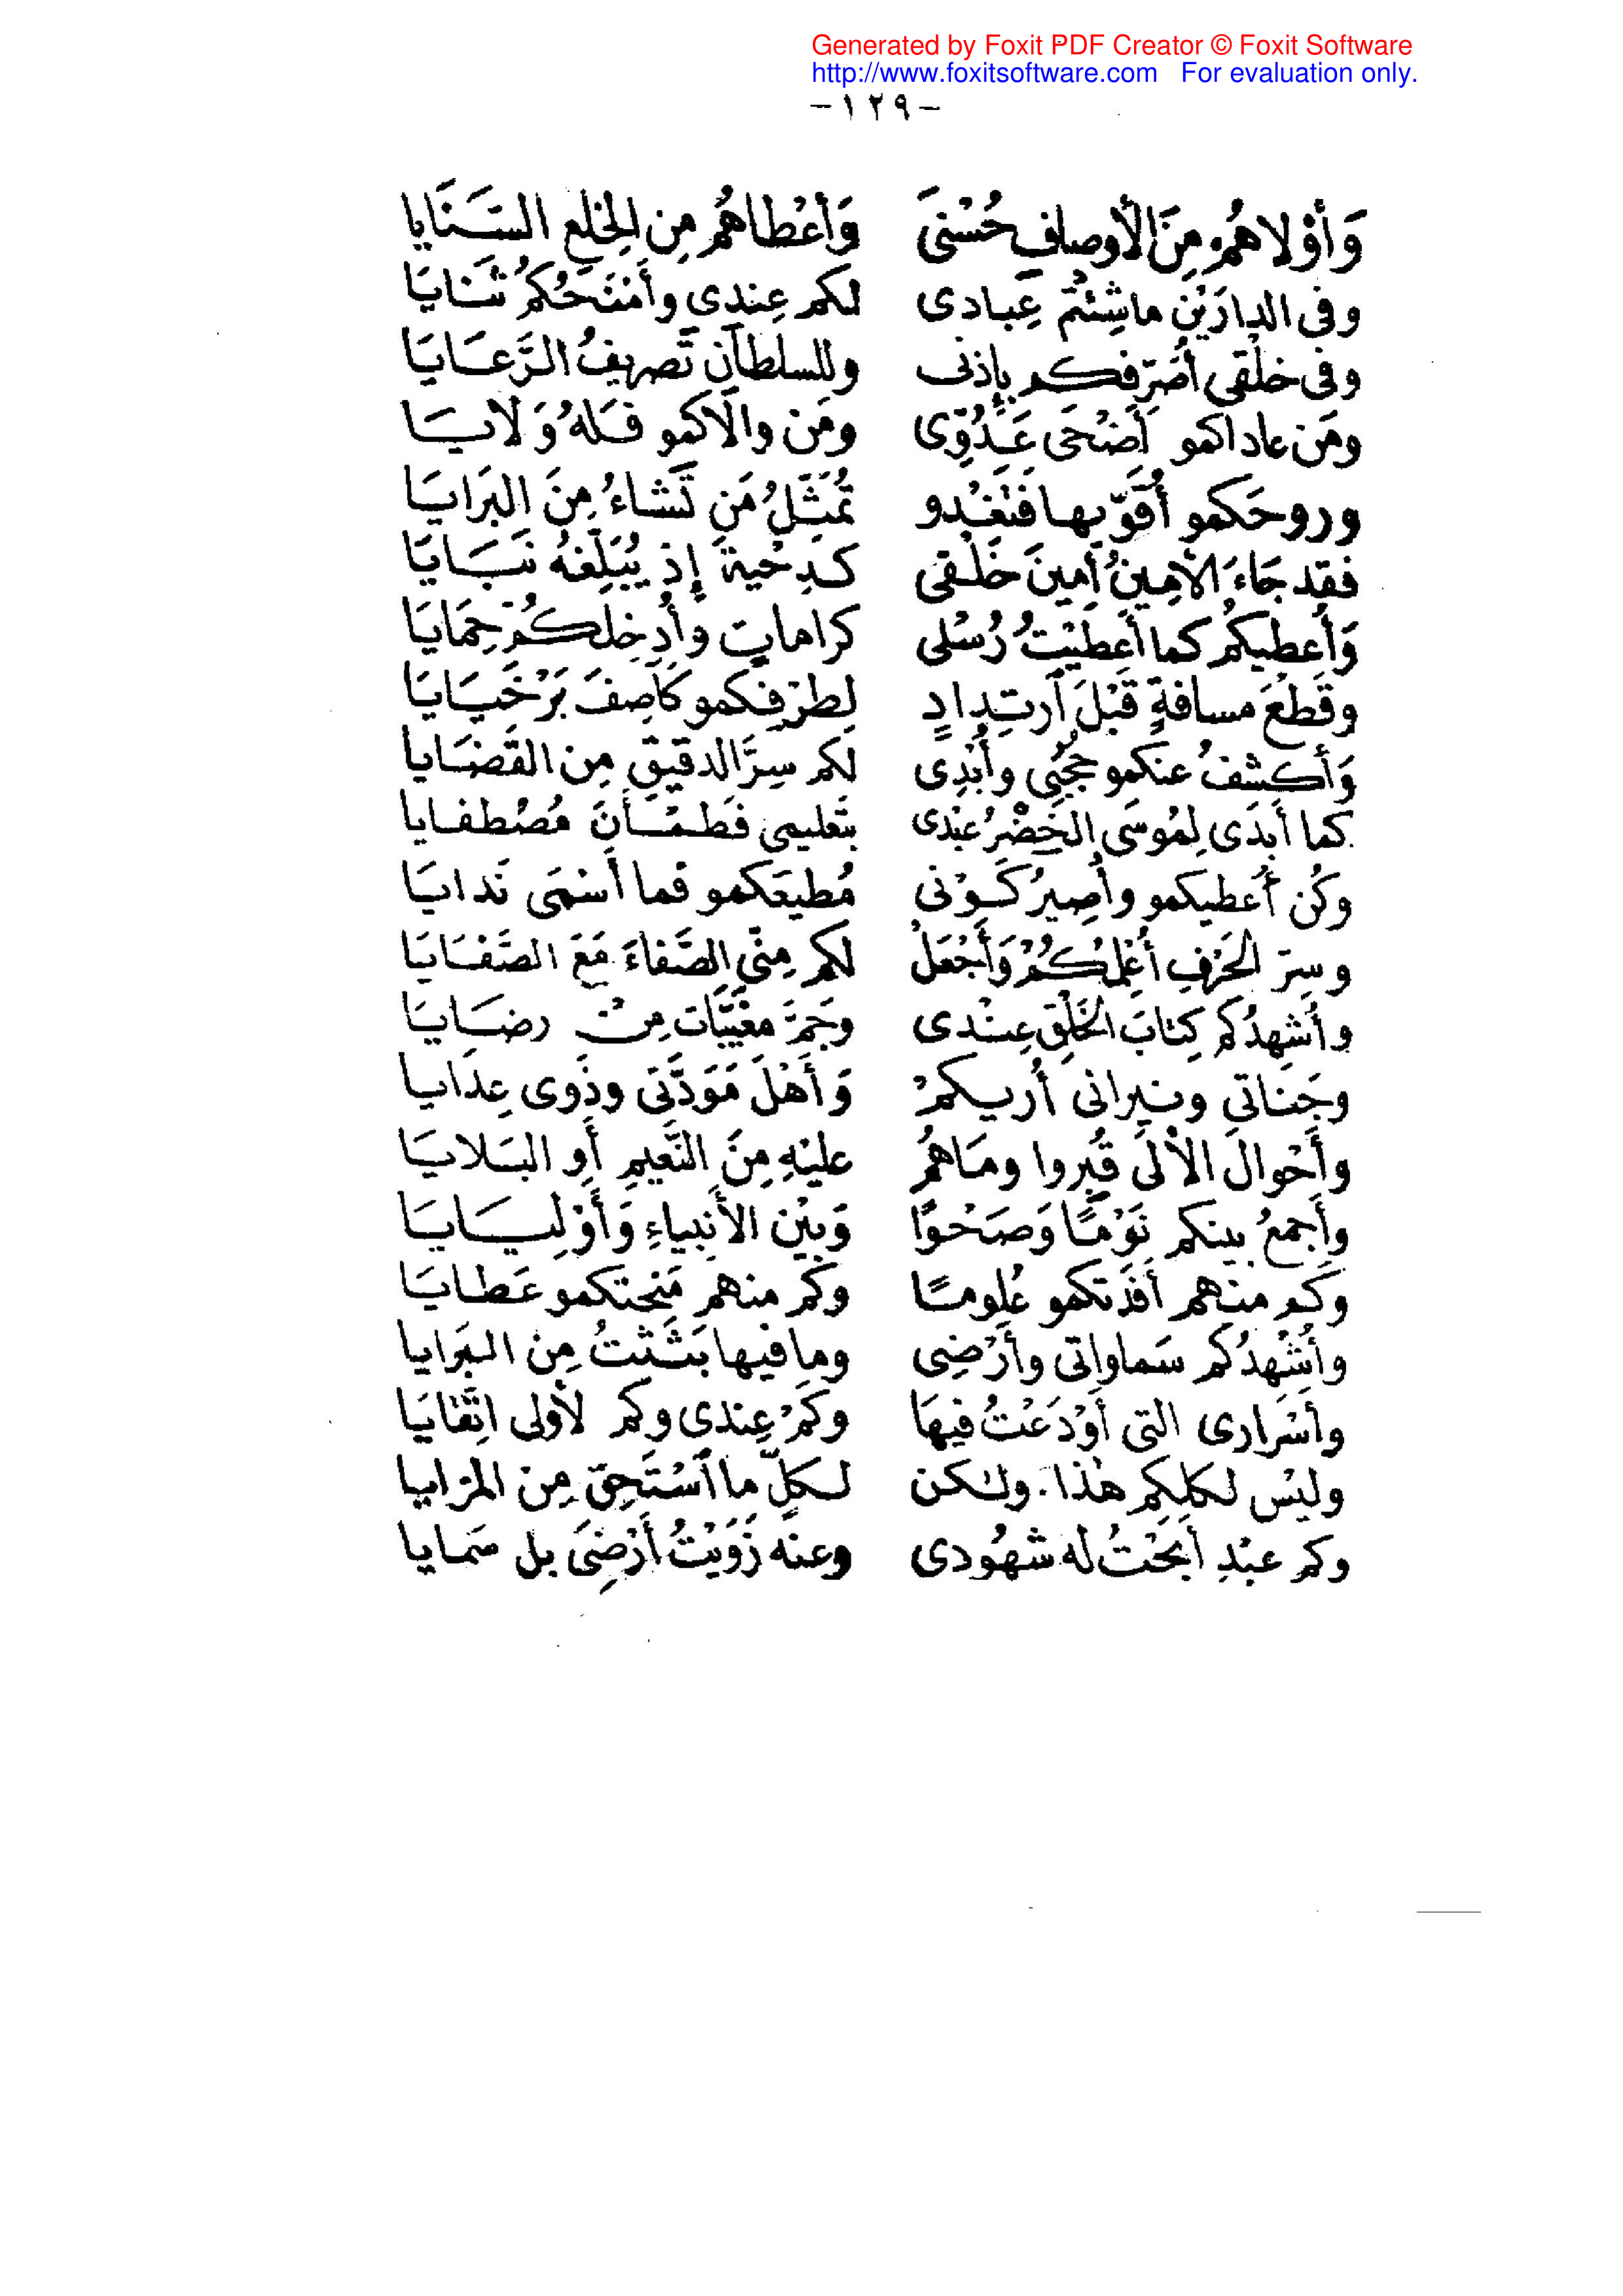 Generated by Foxit PDF Creator © Foxit Software
http://www.foxitsoftware.com For evaluation only.
-١٢٩-
وَأَوْلاهُمُ مِنَ الأَوصافِ حُسْنَى وَأَعْطاهُمْ مِن الخِلَعِ السَّنَايا
وفى الدارَيْنِ ماشِئتُمْ عِبادى لكم عِندِى وأَمْنَحُكُمْ ثَنَايَا
وفى خَلْقى أُصَرِّفكم بإِذنى وللسلطانِ تَصريفُ الرَّعَايَا
ومَن عاداكمو أَضْحَى عَدُوِّى ومَن والَاكمو فَلَهُ وَلَايَا
وروحَكمو أُقَوِّيها فَتَغْدو تُمَثِّلُ مَن تَشاءُ مِنَ البَرَايَا
فقد جَاءَ الأَمِينُ أَمِينَ خَلْقى كدِحْيةَ إِذ يُبَلِّغهُ نَبَايَا
وَأُعطيكُم كما أَعطَيْتُ رُسْلى كراماتٍ وأُدخِلكُمْ حِمَايَا
وقَطْعَ مسافةٍ قَبْلَ ٱرتِدادٍ لِطَرْفِكمو كَآصِفَ بَرْخَيَايَا
وَأَكشفُ عنكمو حُجُبِى وأُبْدِى لكم سِرَّ الدقيقِ مِن القَضَايا
كما أَبدَى لِمُوسَى الخَضْرُ عبْدى بتَعليمى فَطَمْأَنَ مُصْطفايا
وكُن أُعطيكمو وأُصِيرُ كَوْنى مُطيعَكمو فما أَسْمَى نَدايَا
وسِرّ الحَرْفِ أُعْلِمُكُمْ وَأَجْعَلْ لكم مِنّى الصَّفاءَ مَعَ الصَّفَايَا
وأُشهِدُكم كِتابَ الخَلْقِ عِنْدى وجَمَّ مغَيَّبَات مِنْ رضَايَا
وجَناتى ونيرانى أُريكمْ وَأَهْلَ مَوَدَّتى وذَوى عِدَايا
وأَحْوالَ الأُلَى قُبِروا ومَاهُمْ عليْهِ مِنَ النَّعيمِ أَو البَلايَا
وأَجمعُ بينكم نَوْمًا وَصَحْوًا وَبيْن الأَنبياءِ وَأَوْلِيَايَا
وكم منهم أَفَدْتكمو عُلومًا وكم منهم مَنَحتكمو عَطايَا
وأُشْهِدُكم سَماواتى وأَرْضِى وما فيها بَثَثْتُ مِن البَرايا
وأَسْرارى التى أَوْدَعْتُ فيهَا وكَمْ عِندى وكم لأُولى اتِّقَايَا
وليْس لكلِكم هٰذا. ولٰكن لكلّ ما ٱسْتَحِقّ مِن المزايا
وكم عبْدٍ أَبَحْتُ له شهُودى وعنه زَوَيْتُ أَرْضِىَ بل سَمايا